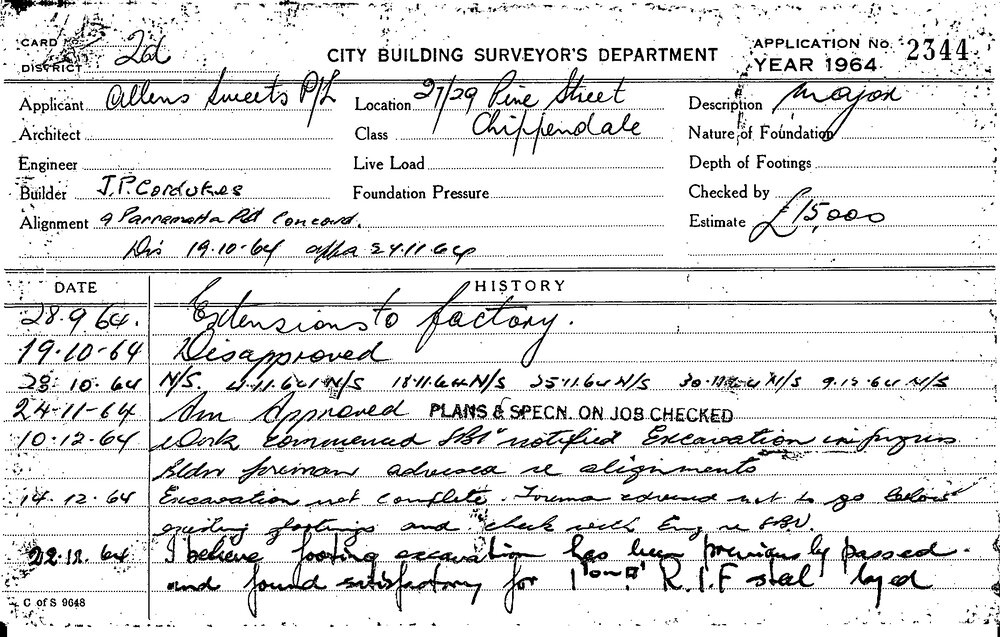 CARD 2d CITY BUILDING SURVEYOR'S DEPARTMENT APPLICATION No. 2344
DISTRICT YEAR 1964
Applicant Allens Sweets P/L Location 27/29 Pine Street Description Major
Architect Class Chippendale Nature of Foundation
Engineer Live Load Depth of Footings
Builder J.P. Cordukes Foundation Pressure Checked by
Alignment 9 Parramatta Rd Concord. Estimate £15,000
Dis 19.10.64 appa 24.11.64
DATE HISTORY
28.9.64. Extensions to factory.
19.10-64 Disapproved
28.10.64 N/S. 4.11.64 N/S 18.11.64 N/S 25.11.64 N/S 30.11.64 N/S 9.12.64 N/S
24-11-64 Am Approved PLANS & SPECN. ON JOB CHECKED
10.12.64 Work commenced notified Excavation in progress
Bldr foreman advised re alignments
14.12.64 Excavation not complete. Foreman advised not to go below
existing footings and check with Eng re
22.12.64 I believe footing excavation has been previously passed.
and found satisfactory for R.I.F steel layed
C of S 9648